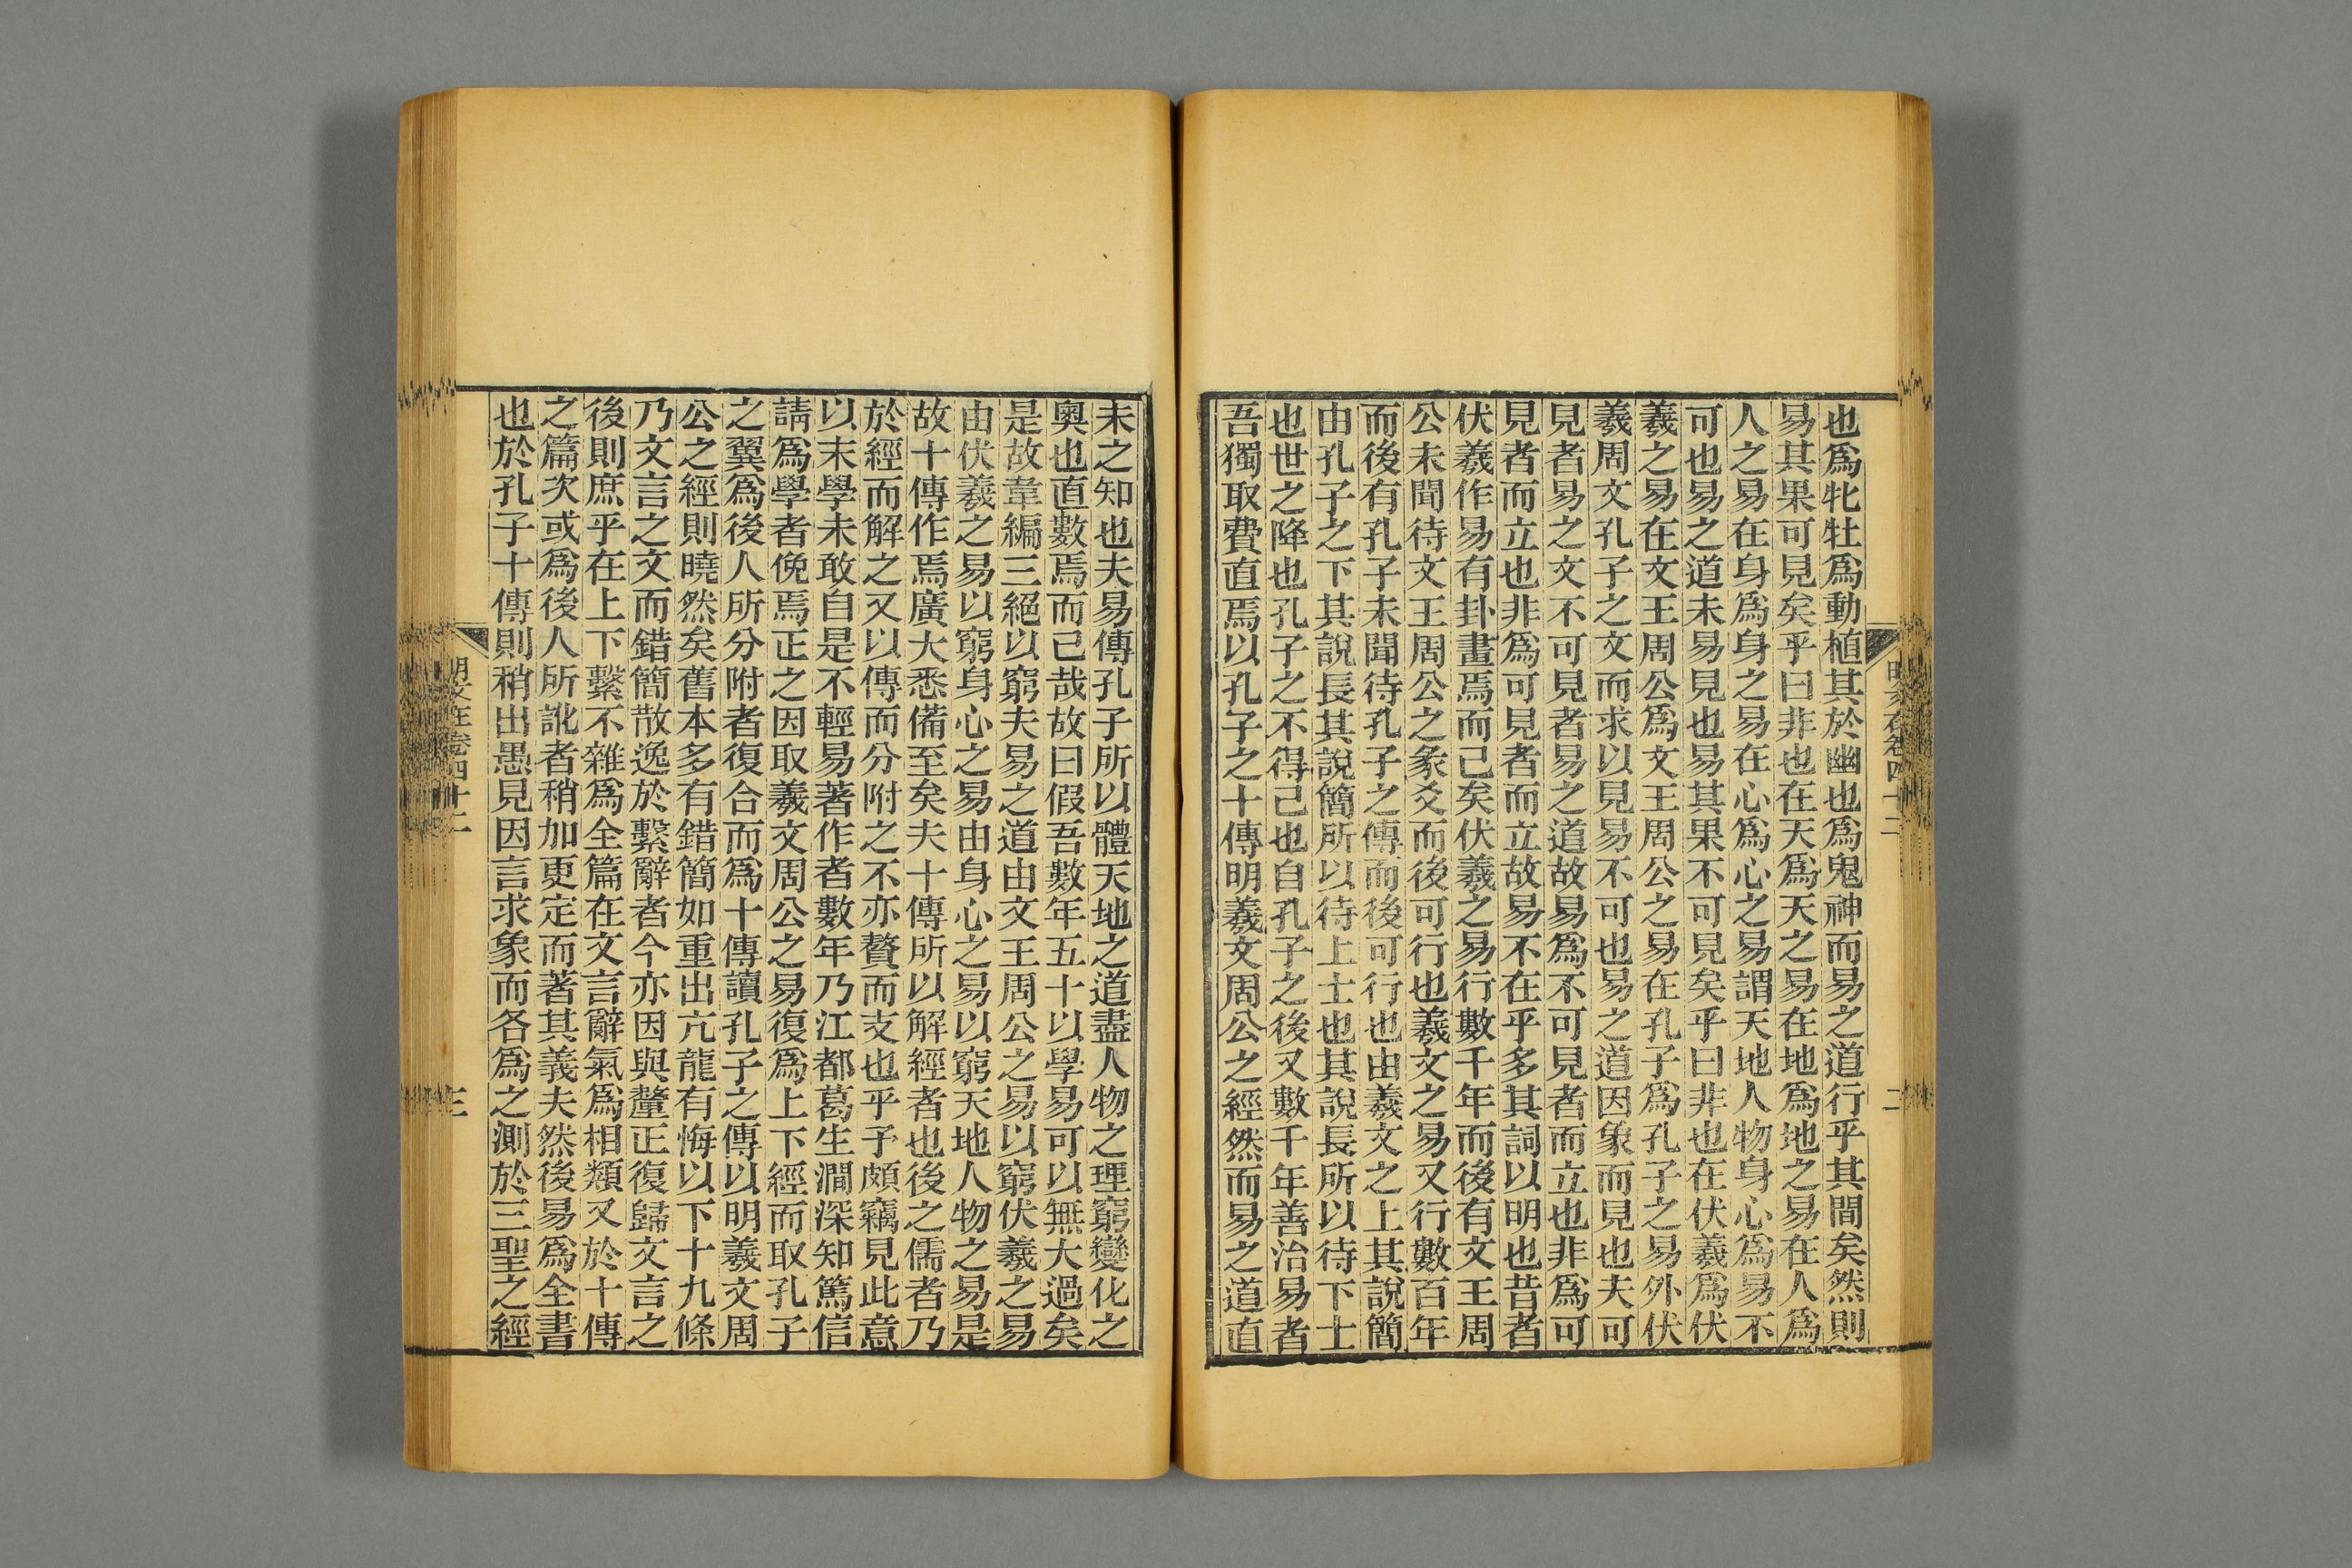 也爲牝牡爲動植其於幽也爲鬼神而易之道行乎其間矣然則
易其果可見矣乎曰非也在天爲天之易在地爲地之易在人爲
人之易在身爲身之易在心爲心之易謂天地人物身心爲易不
可也易之道未易見也易其果不可見矣乎曰非也在伏羲爲伏
羲之易在文王周公爲文王周公之易在孔子爲孔子之易外伏
羲周文孔子之文而求以見易不可也易之道因象而見也夫可
見者易之文不可見者易之道故易爲不可見者而立也非爲可
見者而立也非爲可見者而立故易不在乎多其詞以明也昔者
伏羲作易有卦畫焉而已矣伏羲之易行數千年而後有文王周
公未聞待文王周公之象爻而後可行也羲文之易又行數百年
而後有孔子未聞待孔子之傳而後可行也由羲文之上其說簡
由孔子之下其說長其說簡所以待上士也其說長所以待下士
也世之降也孔子之不得已也自孔子之後又數千年善治易者
吾獨取費直焉以孔子之十傳明羲文周公之經然而易之道直
未之知也夫易傳孔子所以體天地之道盡人物之理窮變化之
奧也直數焉而已哉故曰假吾數年五十以學易可以無大過矣
是故韋編三絕以窮夫易之道由文王周公之易以窮伏羲之易
由伏羲之易以窮身心之易由身心之易以窮天地人物之易是
故十傳作焉廣大悉備至矣夫十傳所以解經者也後之儒者乃
於經而解之又以傳而分附之不亦贅而支也乎予頗竊見此意
以末學未敢自是不輕易著作者數年乃江都葛生澗深知篤信
請爲學者俛焉正之因取羲文周公之易復爲上下經而取孔子
之翼爲後人所分附者復合而爲十傳讀孔子之傳以明羲文周
公之經則曉然矣舊本多有錯簡如重出亢龍有悔以下十九條
乃文言之文而錯簡散逸於繫辭者今亦因與釐正復歸文言之
後則庶乎在上下繫不雜爲全篇在文言辭氣爲相類又於十傳
之篇次或爲後人所訛者稍加更定而著其義夫然後易爲全書
也於孔子十傳則稍出愚見因言求象而各爲之測於三聖之經
明文在卷四十二
二
明文在卷四十二
三